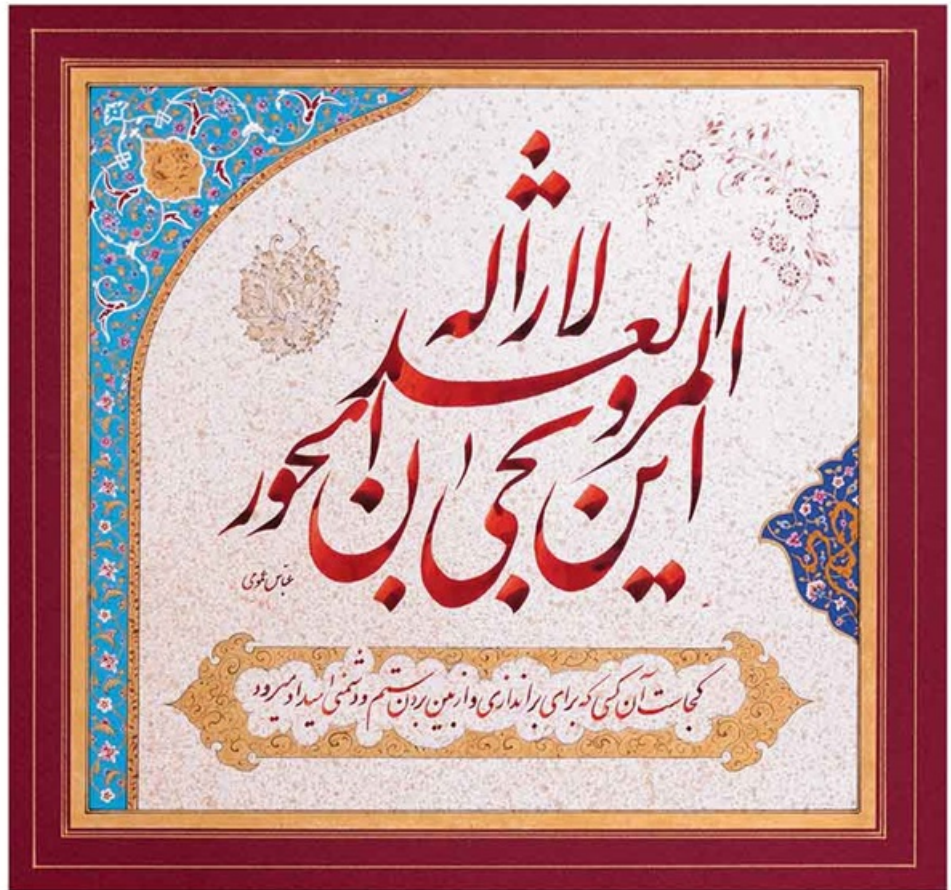 این المرتجی لازالة الجور و العدوان
کجاست آن کسی که برای براندازی و از بین بردن ستم و دشمنی امید او میرود